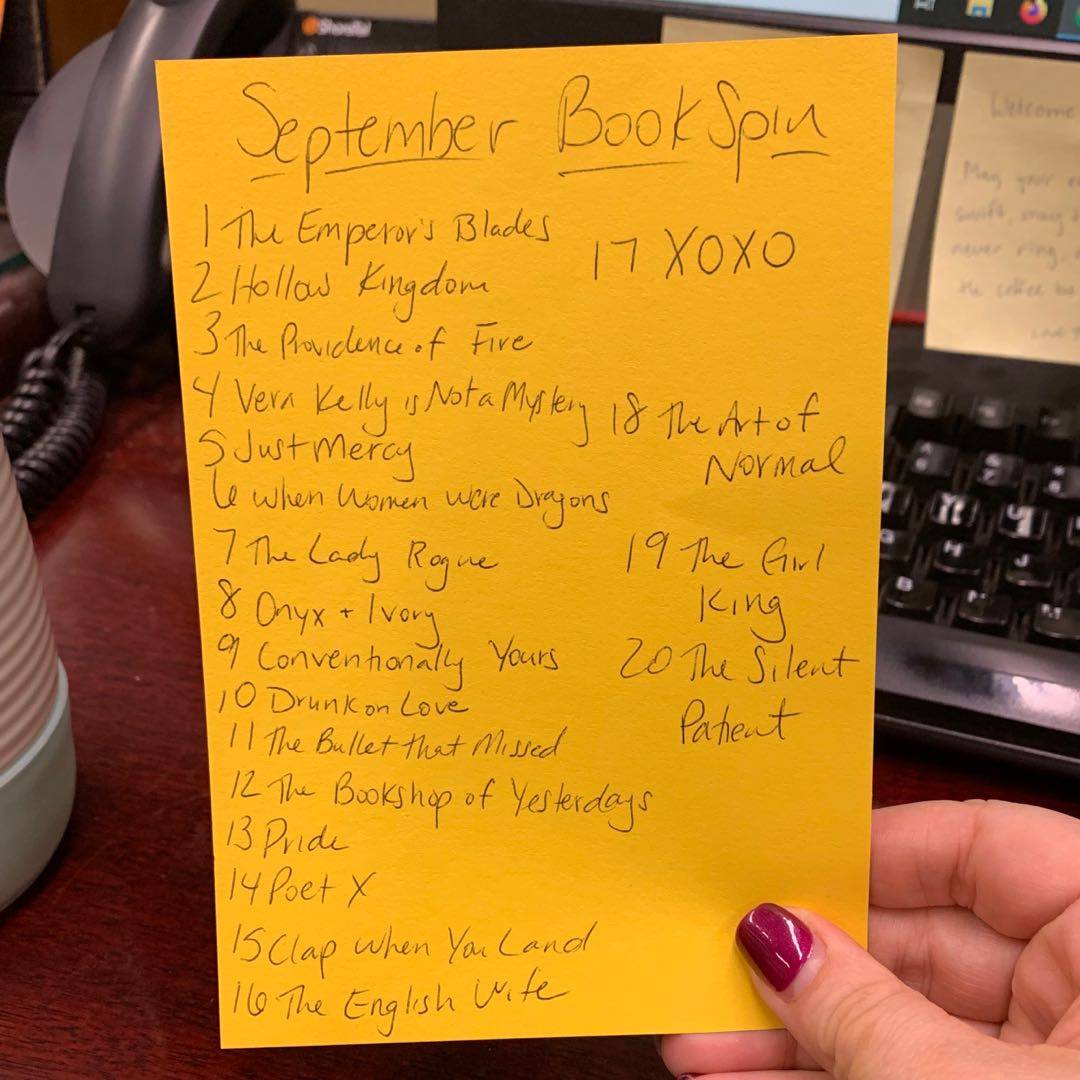 September BookSpin
1 The Emperor's Blades
2 Hollow Kingdom
3 The Providence of Fire
4 Vera Kelly is Not a Mystery
5 Just Mercy
6 When Women Were Dragons
7 The Lady Rogue
8 Onyx + Ivory
9 Conventionally Yours
10 Drunk on Love
11 The Bullet that Missed
12 The Bookshop of Yesterdays
13 Pride
14 Poet X
15 Clap When You Land
16 The English Wife
17 XOXO
18 The Art of
Normal
19 The Girl
King
20 The Silent
Patient
ShoreTel
Welcome
May your
swift, may
never ring,
the coffee be